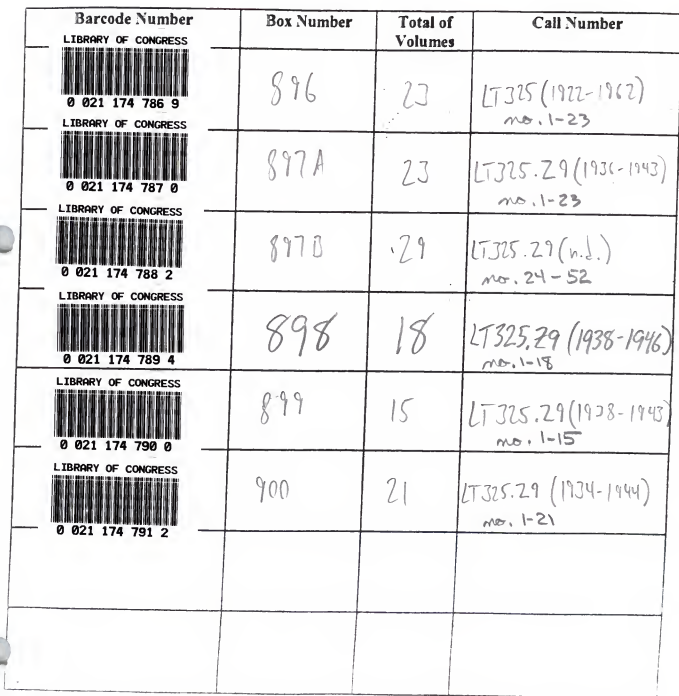 Barcode Number Box Number Total of Volumes Call Number
LIBRARY OF CONGRESS
0 021 174 786 9
896 23 LT325 (1922-1962)
no. 1-23
LIBRARY OF CONGRESS
0 021 174 787 0
897A 23 LT325.Z9 (1936-1943)
no. 1-23
LIBRARY OF CONGRESS
0 021 174 788 2
897B 29 LT325.Z9 (n.d.)
no. 24-52
LIBRARY OF CONGRESS
0 021 174 789 4
898 18 LT325.Z9 (1938-1946)
no. 1-18
LIBRARY OF CONGRESS
0 021 174 790 0
899 15 LT325.Z9 (1938-1943)
no. 1-15
LIBRARY OF CONGRESS
0 021 174 791 2
900 21 LT325.Z9 (1934-1944)
no. 1-21